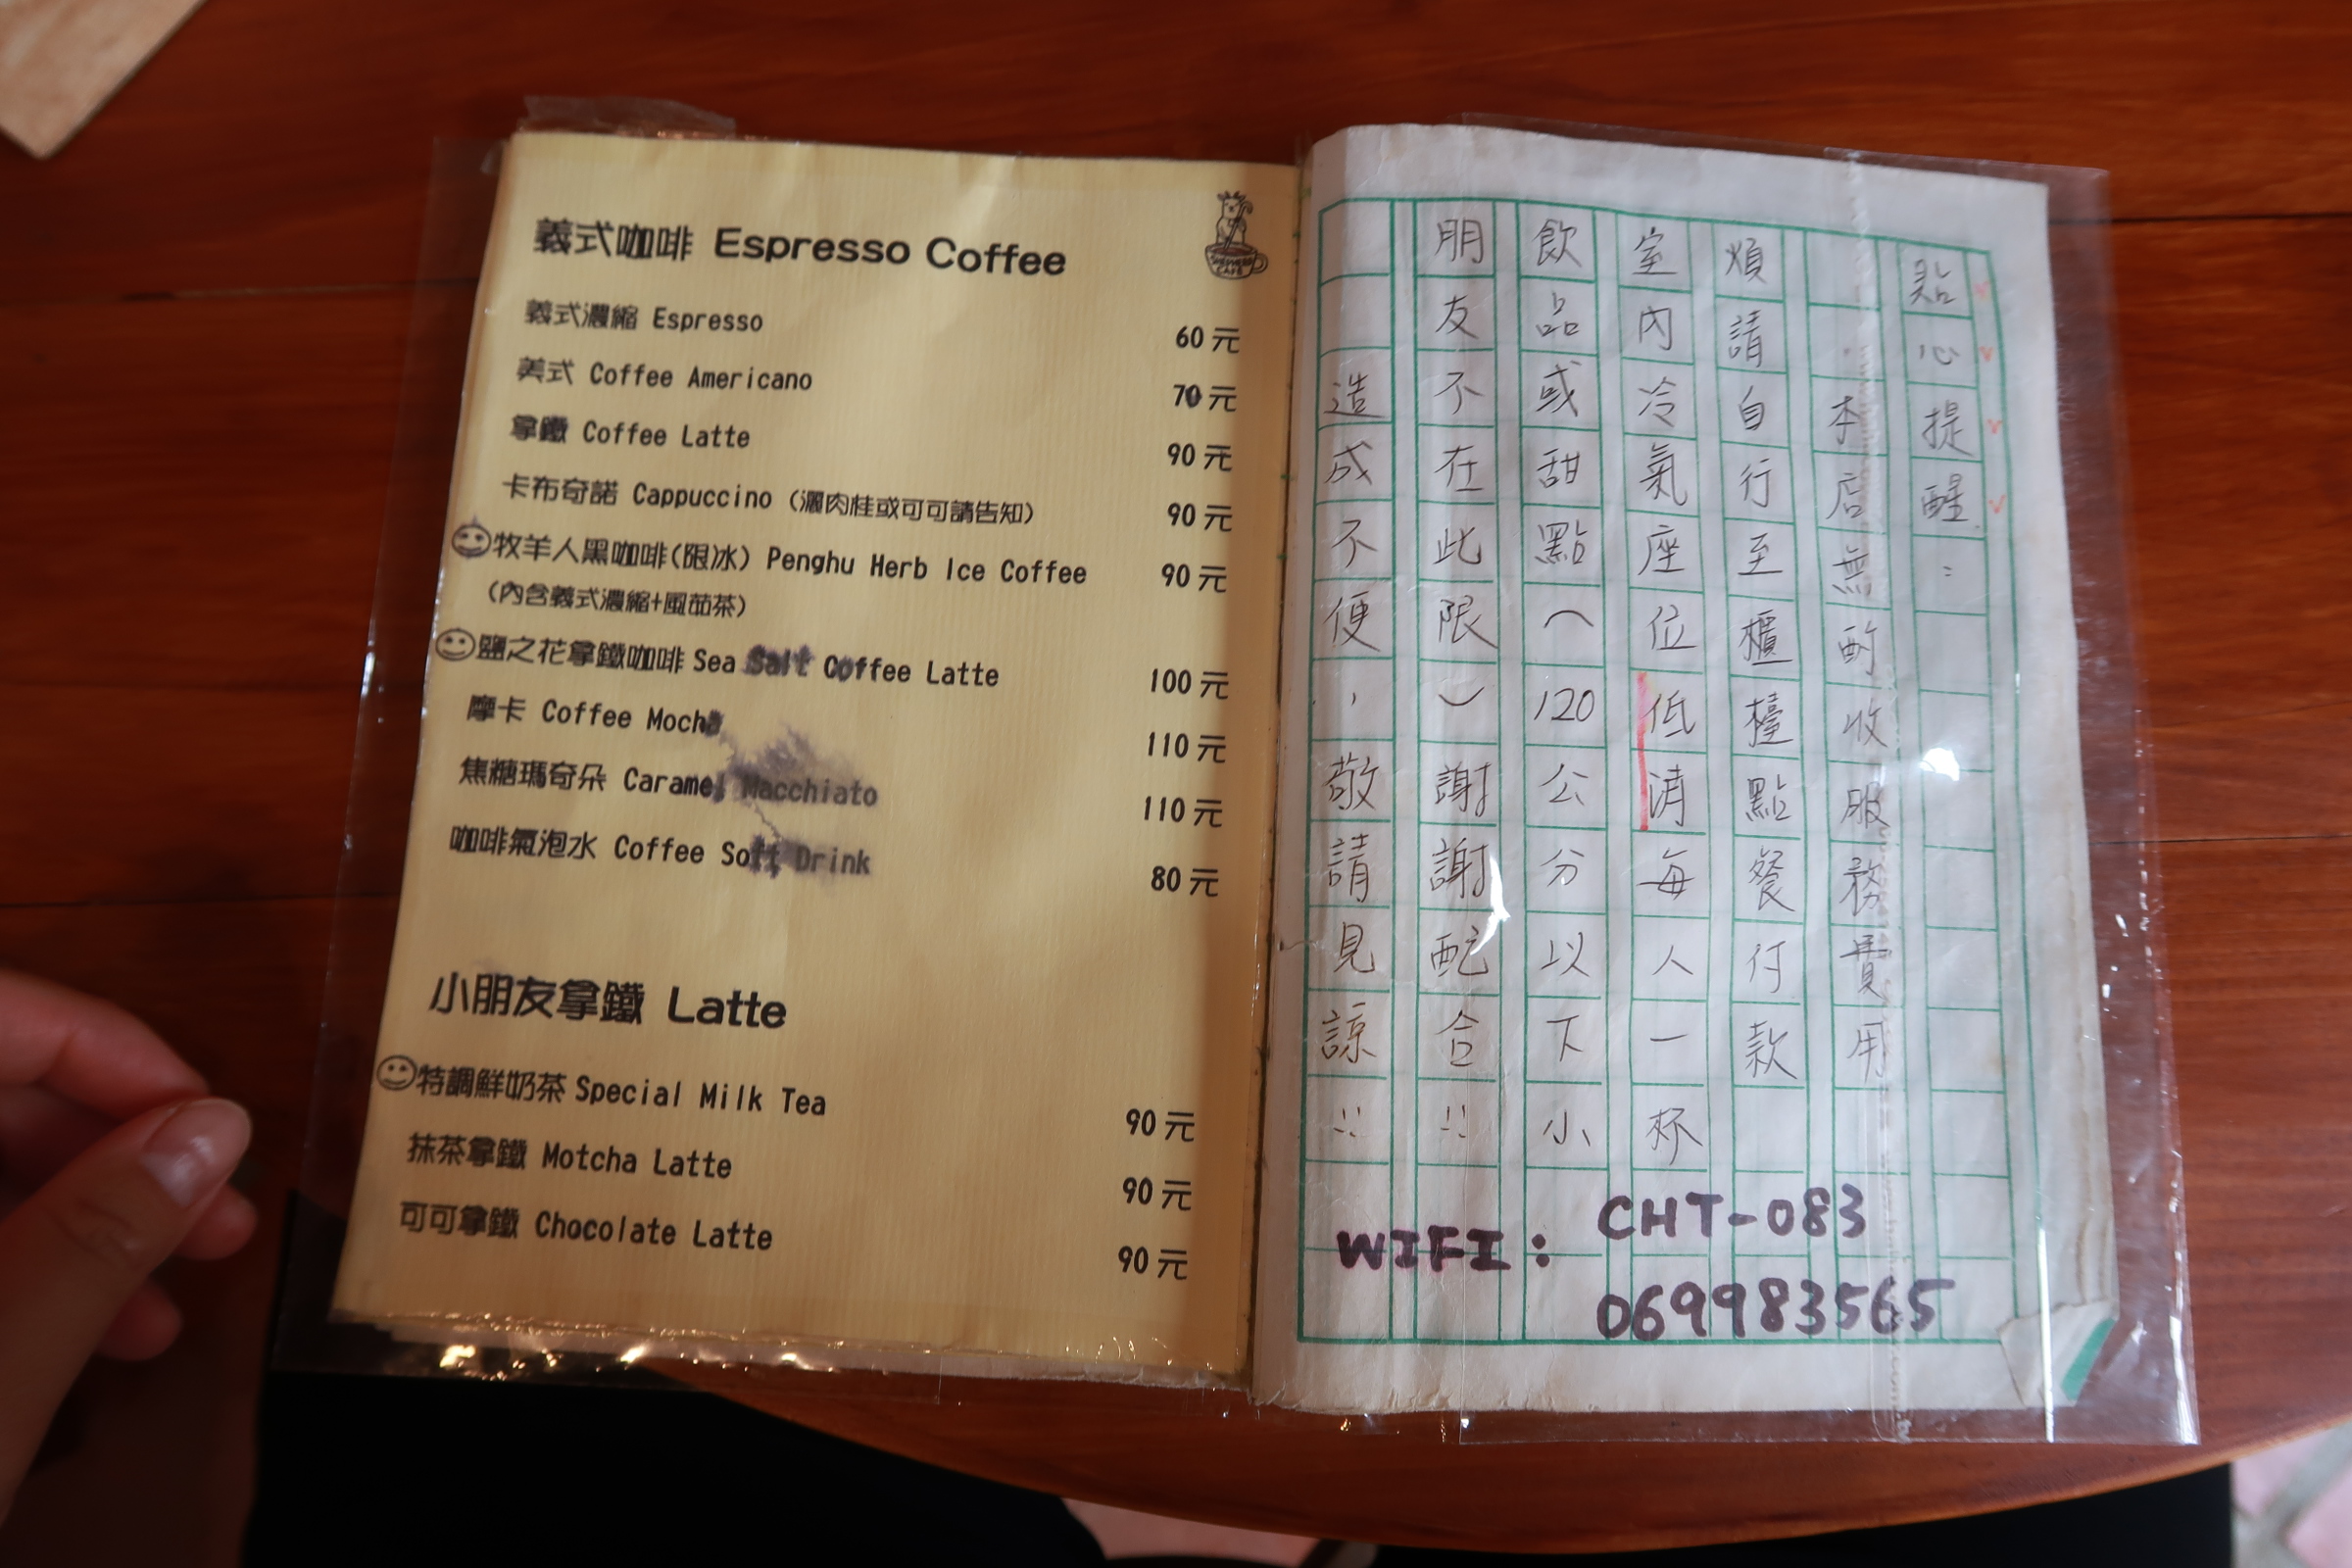 義式咖啡 Espresso Coffee
義式濃縮 Espresso 60元
美式 Coffee Americano 70元
拿鐵 Coffee Latte 90元
卡布奇諾 Cappuccino (灑肉桂或可可請告知) 90元
牧羊人黑咖啡(限冰) Penghu Herb Ice Coffee 90元
(內含義式濃縮+風茹茶)
鹽之花拿鐵咖啡 Sea Salt Coffee Latte 100元
摩卡 Coffee Mocha 110元
焦糖瑪奇朵 Caramel Macchiato 110元
咖啡氣泡水 Coffee Soft Drink 80元
小朋友拿鐵 Latte
特調鮮奶茶 Special Milk Tea 90元
抹茶拿鐵 Motcha Latte 90元
可可拿鐵 Chocolate Latte 90元
貼心提醒:
本店無酌收服務費用
煩請自行至櫃檯點餐付款
室內冷氣座位低消每人一杯
飲品或甜點(120公分以下小
朋友不在此限)謝謝配合!!
造成不便,敬請見諒!!
WIFI: CHT-083
069983565